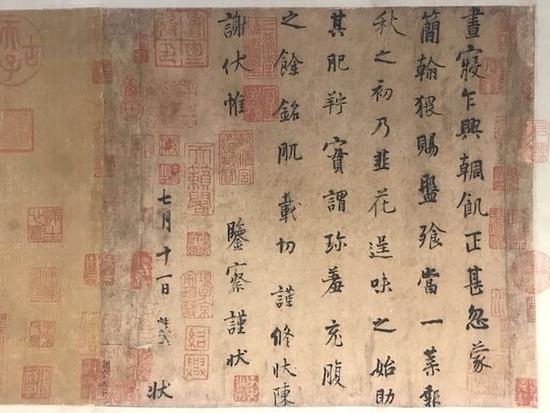 晝寢乍興輖飢正甚忽蒙
簡翰猥賜盤飧當一葉報
秋之初乃韭花逞味之始助
其肥羜實謂珍羞充腹
之餘銘肌載切謹修狀陳
謝伏惟
鑒察謹狀
七月十一日
狀
天籟閣